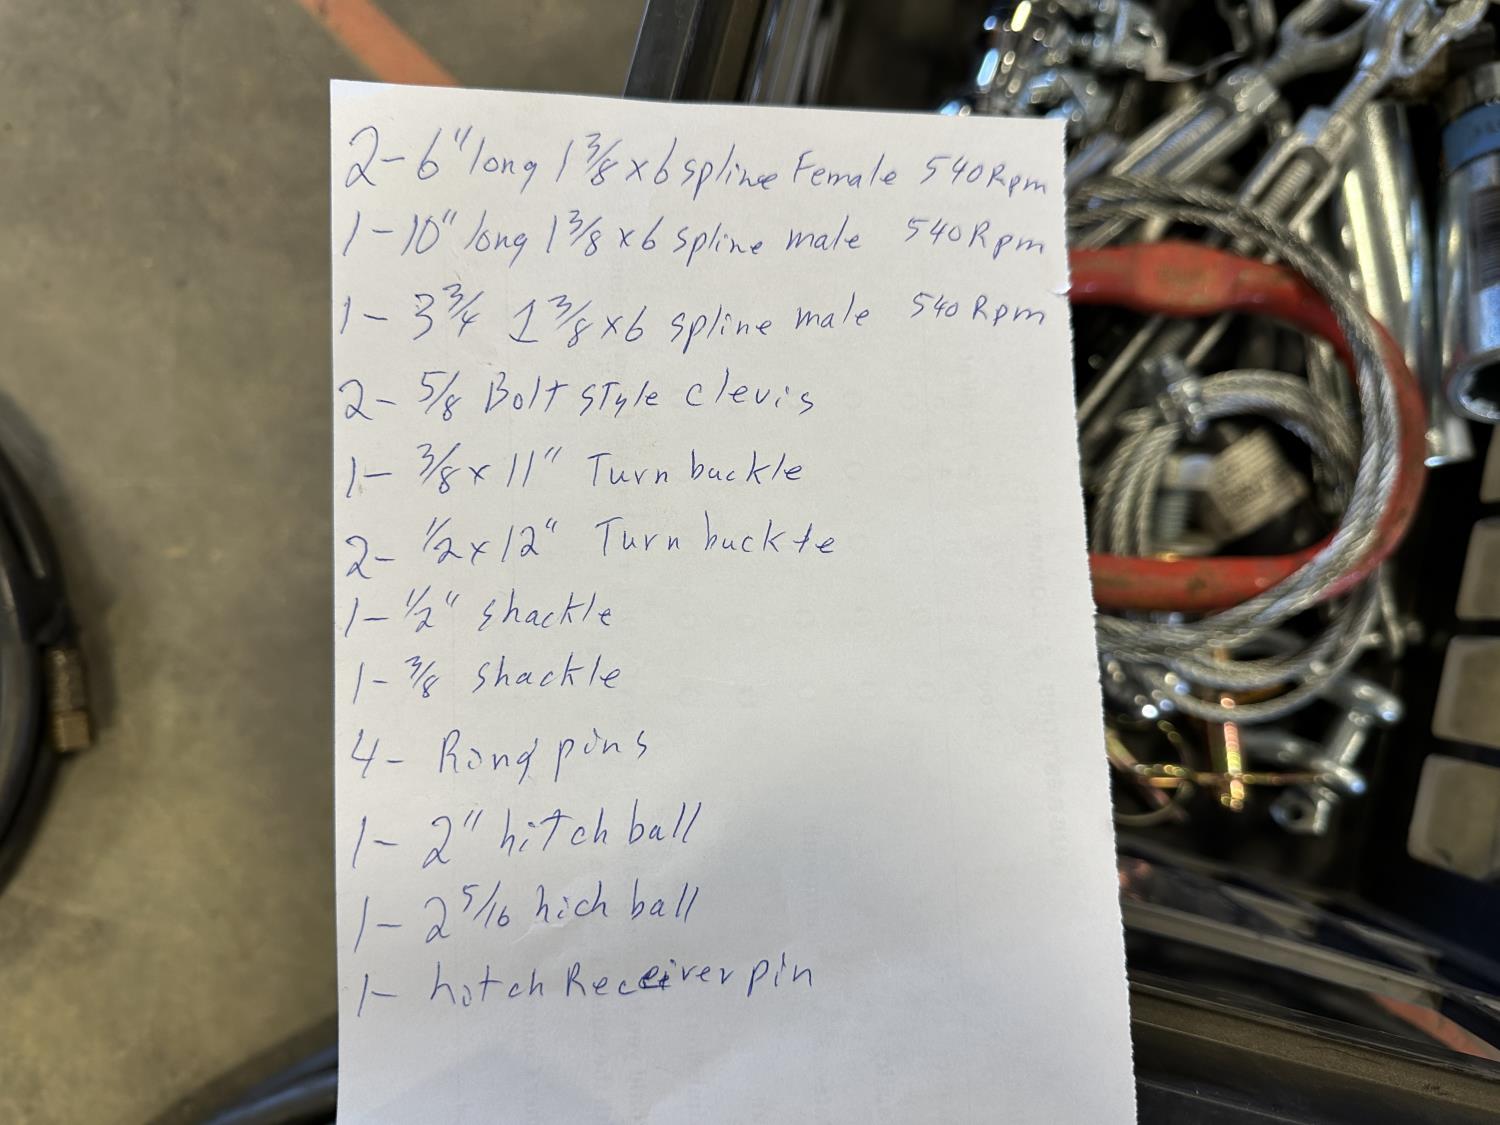 2- 6" long 1 3/8 x 6 spline Female 540 Rpm
1- 10" long 1 3/8 x 6 spline male 540 Rpm
1- 3 3/4 1 3/8 x 6 spline male 540 Rpm
2- 5/8 Bolt style clevis
1- 3/8 x 11" Turn buckle
2- 1/2 x 12" Turn buckle
1- 1/2" shackle
1- 3/8 shackle
4- Ring pins
1- 2" hitch ball
1- 2 5/16 hich ball
1- hitch Receiver pin